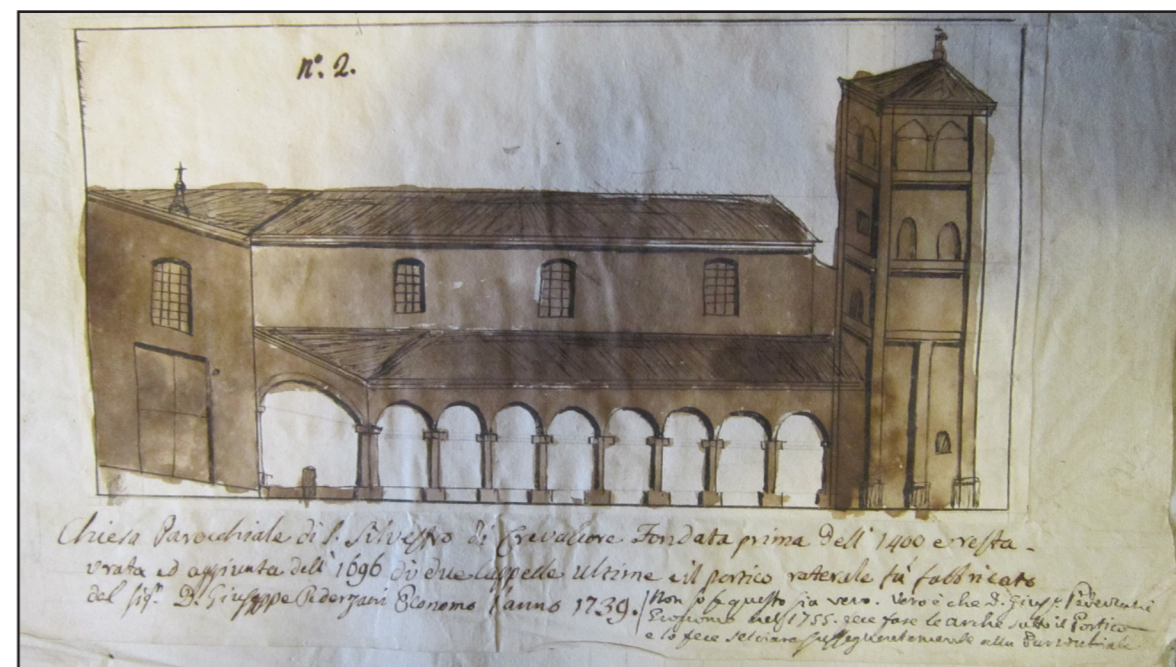 nº. 2.
Chiesa Parochiale di S. Silvestro di Crevalcore Fondata prima dell' 1400 e resta-
urata ed aggiunta dell' 1696 di due Cappelle ultime e il portico raterale fu fabbricato
del Sigr. D. Giuseppe Pederzani Economo l'anno 1739.
Non so se questo sia vero. Vero è che D. Gius. Pederzani
Economo nel 1755. fece fare le arche sotto il Portico
e lo fece selciare susseguentemente alla